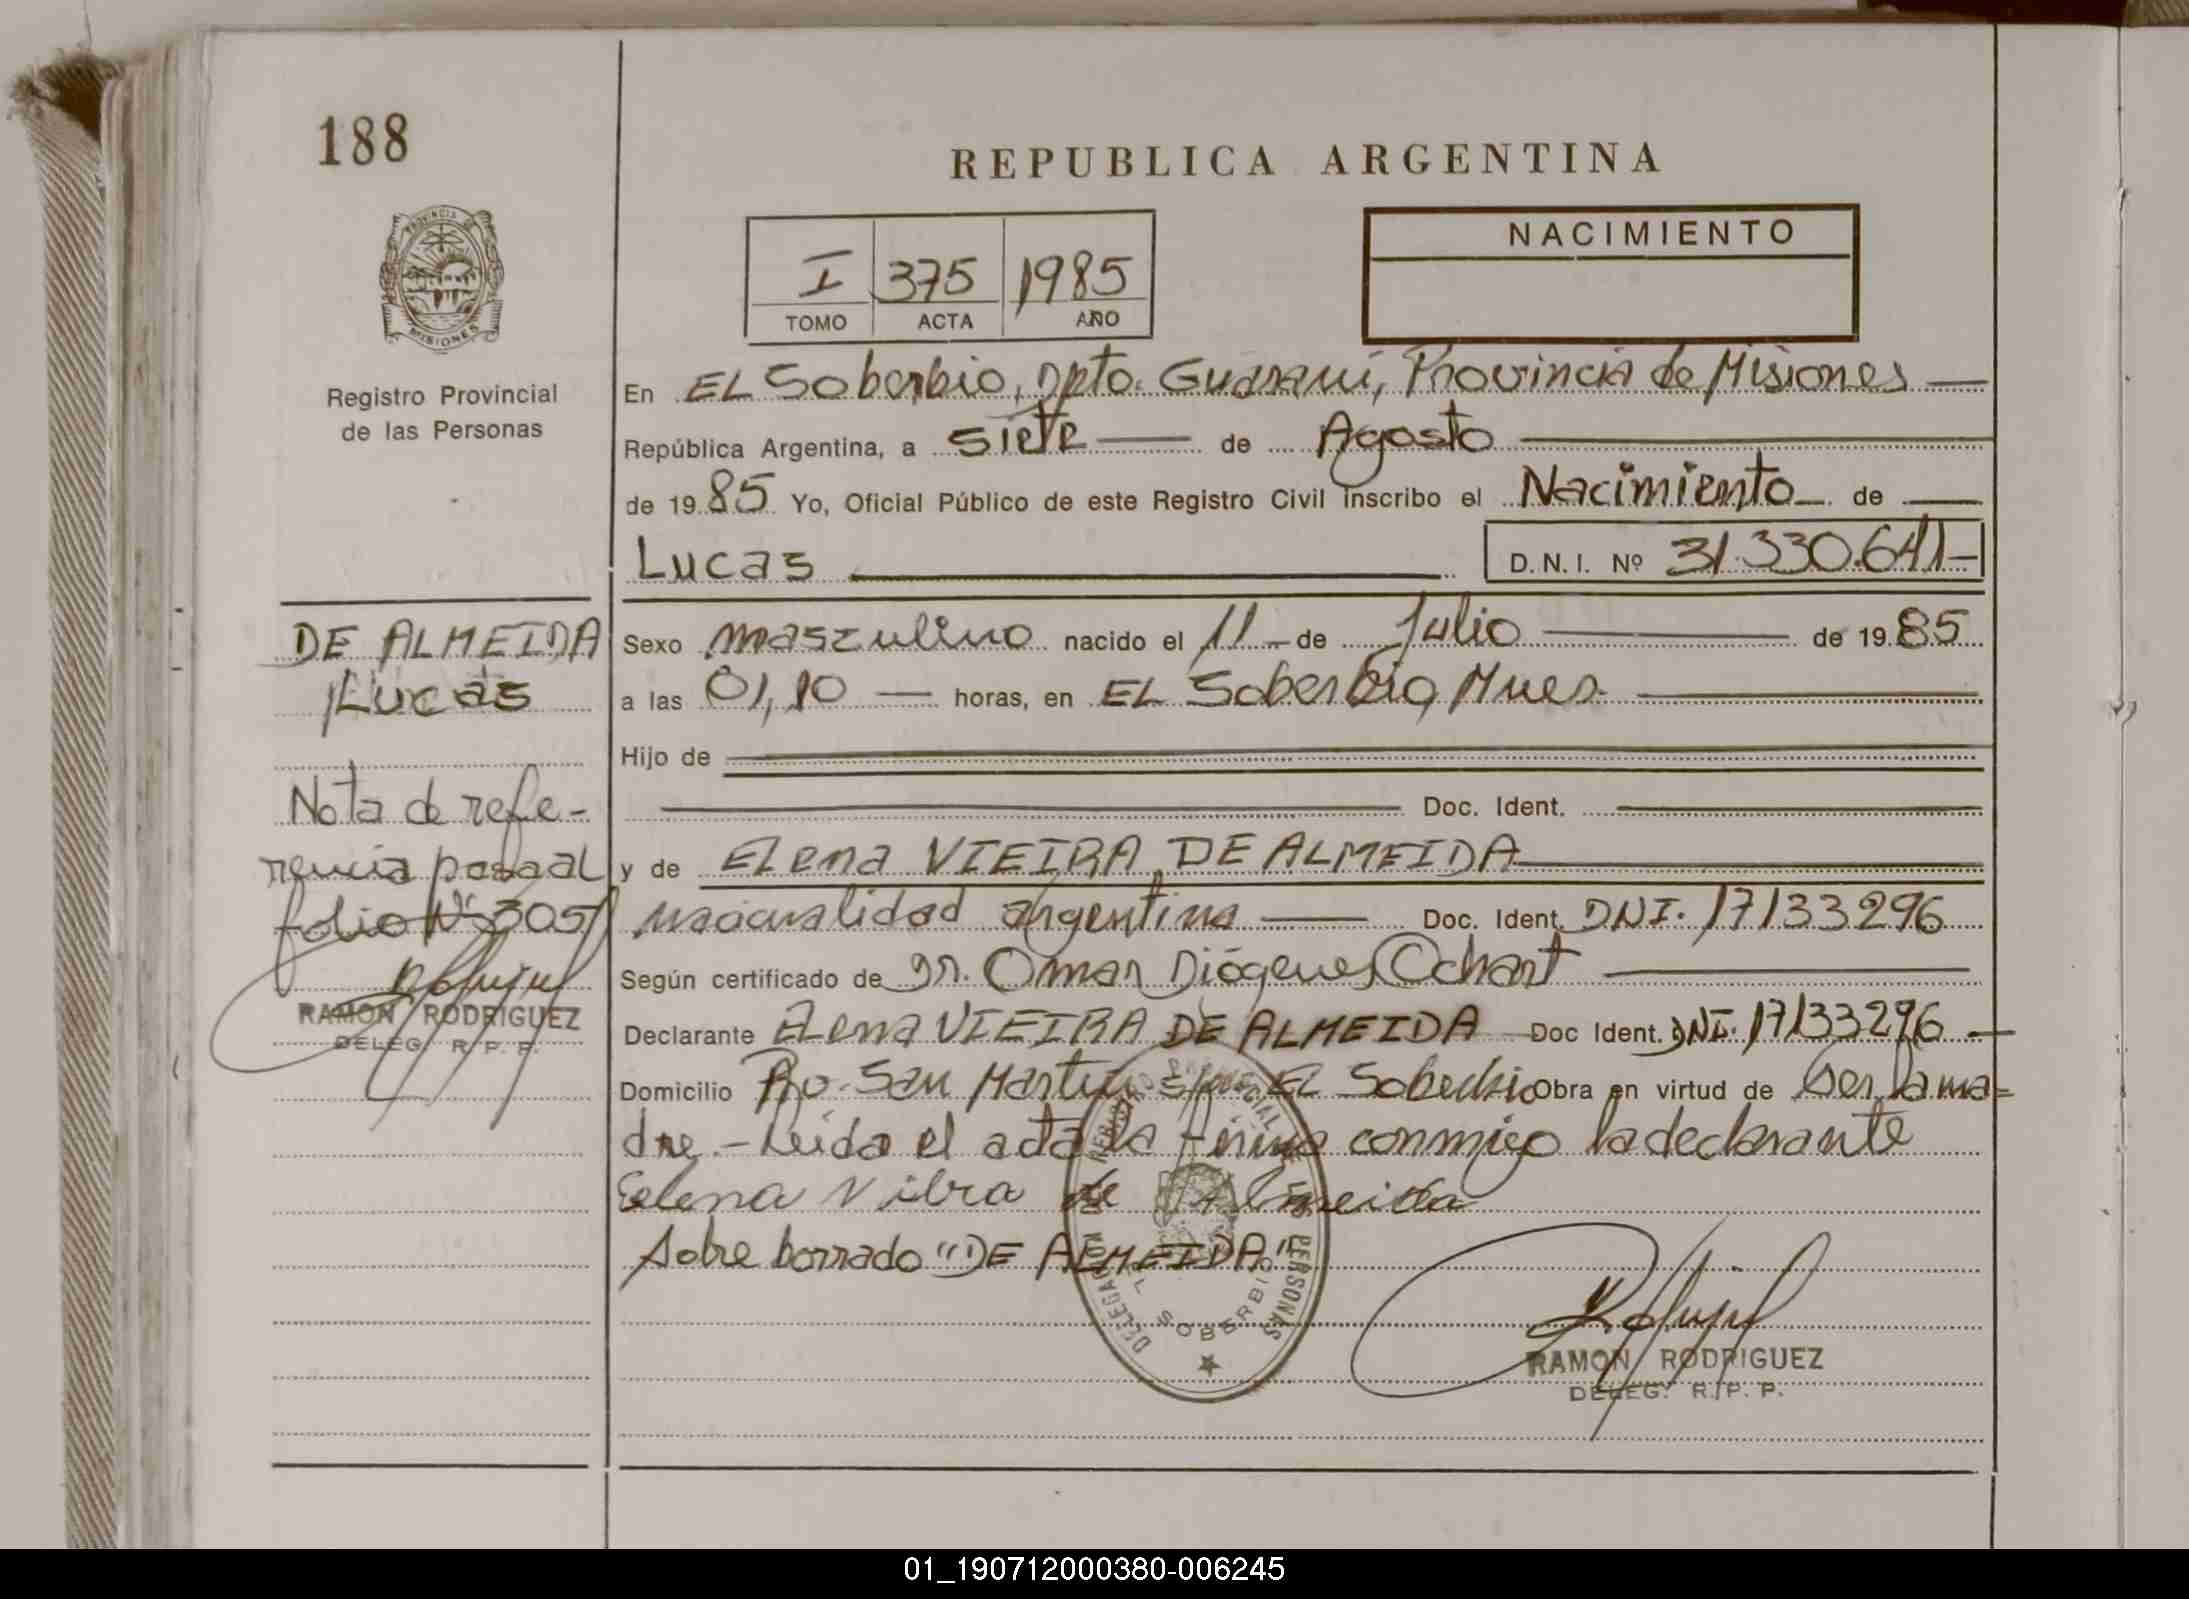 188
REPUBLICA ARGENTINA
PROVINCIA DE MISIONES
Registro Provincial
de las Personas
I 375 1985
TOMO ACTA AÑO
NACIMIENTO
En EL Soberbio, Dpto. Guarani, Provincia de Misiones
República Argentina, a siete de Agosto
de 1985 Yo, Oficial Público de este Registro Civil inscribo el Nacimiento de
Lucas D.N.I. Nº 31.330.641
DE ALMEIDA
Lucas
Nota de refe-
rencia pasa al
folio Nº 305
RAMON RODRIGUEZ
DELEG. R. P. P.
Sexo masculino nacido el 11 de Julio de 1985
a las 01,10 horas, en EL Soberbio, Mnes.
Hijo de
Doc. Ident.
y de Elena VIEIRA DE ALMEIDA
nacionalidad argentina Doc. Ident. DNI. 17133296
Según certificado de Dr. Omar Diógenes Ochart
Declarante Elena VIEIRA DE ALMEIDA Doc Ident. DNI. 17133296
Domicilio Bo. San Martin s/n EL Soberbio Obra en virtud de ser la ma-
dre.- Leida el acta la firma conmigo la declarante
Elena Vibra de Almeida
Sobre borrado "DE ALMEIDA"
DELEGACION DEL REGISTRO PROVINCIAL DE LAS PERSONAS
EL SOBERBIO
RAMON RODRIGUEZ
DELEG. R. P. P.
01_190712000380-006245